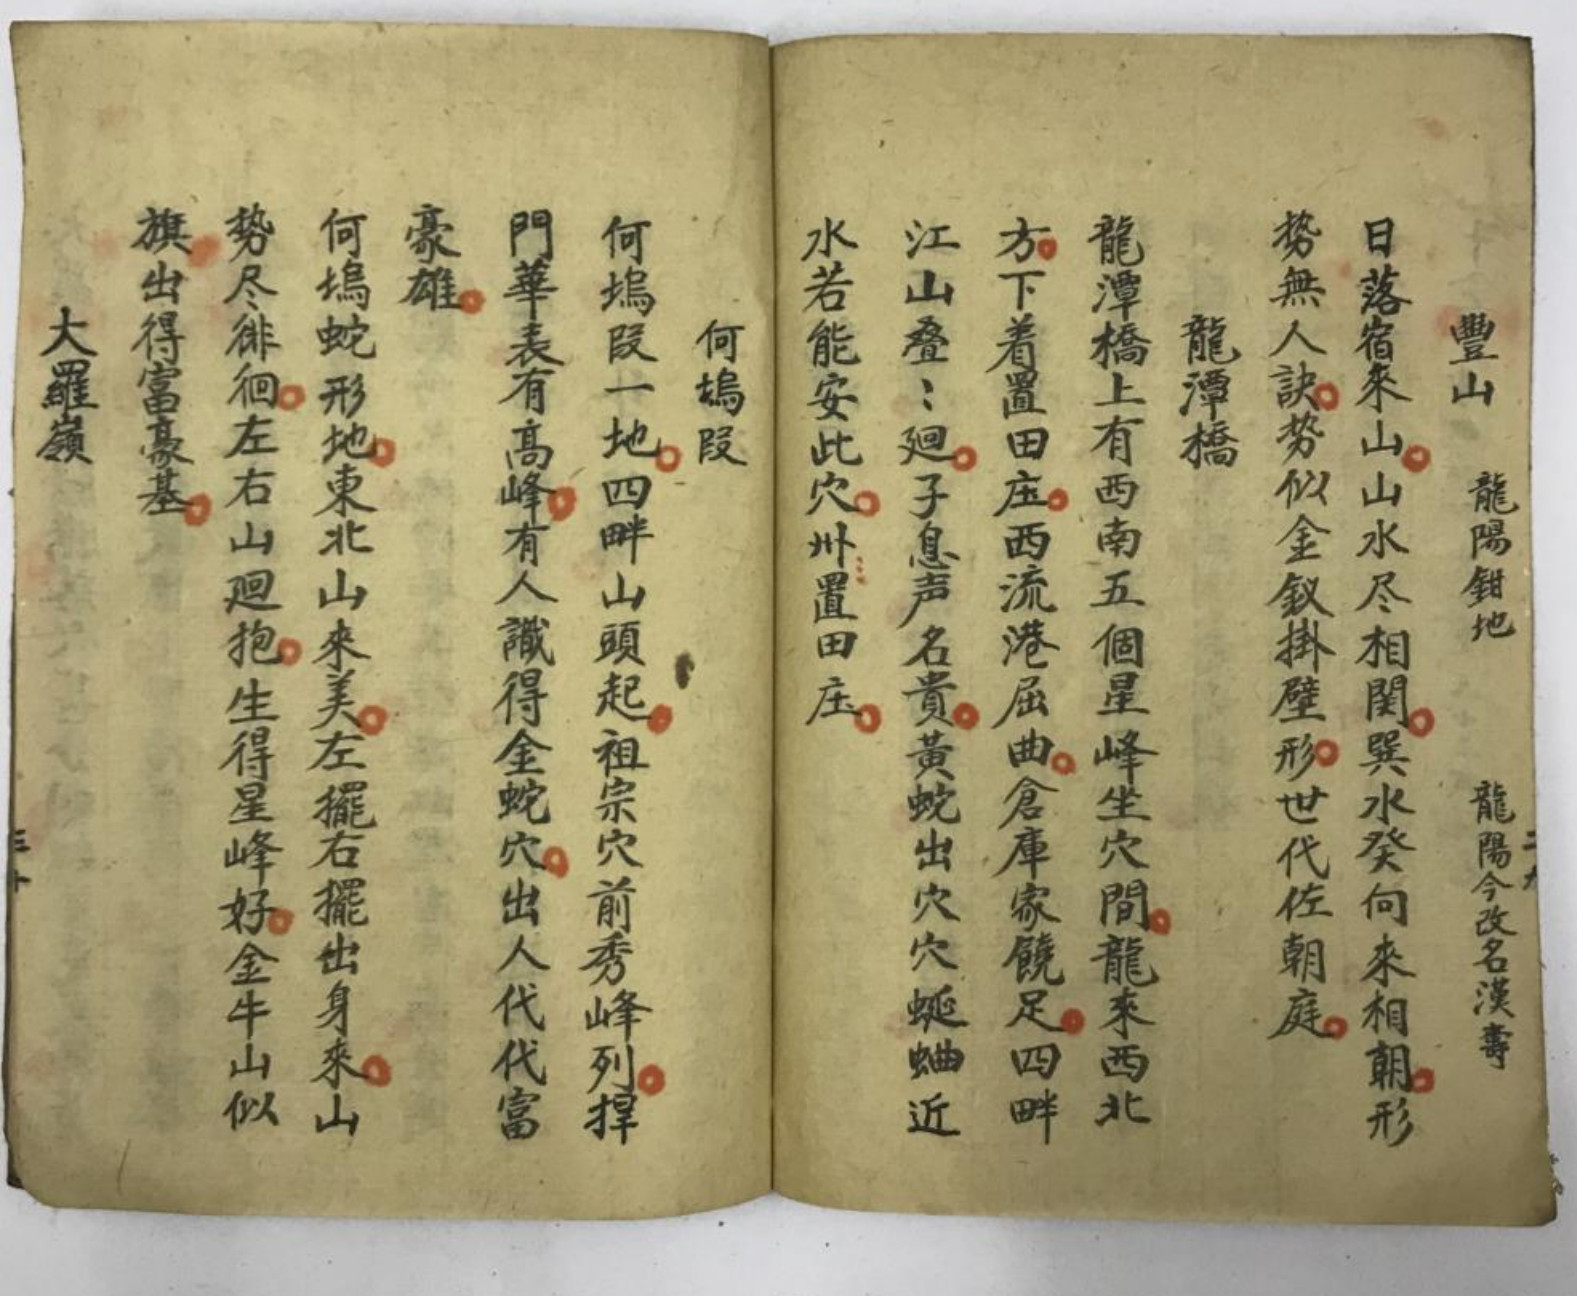 豐山 龍陽鉗地 龍陽今改名漢壽
日落宿來山山水尽相関巽水癸向來相朝形
势無人訣势似金釵掛壁形世代佐朝庭
龍潭橋
龍潭橋上有西南五個星峰坐穴間龍來西北
方下着置田庄西流港屈曲倉庫家饒足四畔
江山叠〻廻子息声名貴黃蛇出穴穴蜒蛐近
水若能安此穴卅置田庄
二九
何塢段
何塢段一地四畔山頭起祖宗穴前秀峰列捍
門華表有高峰有人識得金蛇穴出人代代富
豪雄
何塢蛇形地東北山來美左擺右擺出身來山
势尽徘徊左右山廻抱生得星峰好金牛山似
旗出得富豪基
大羅嶺
三十